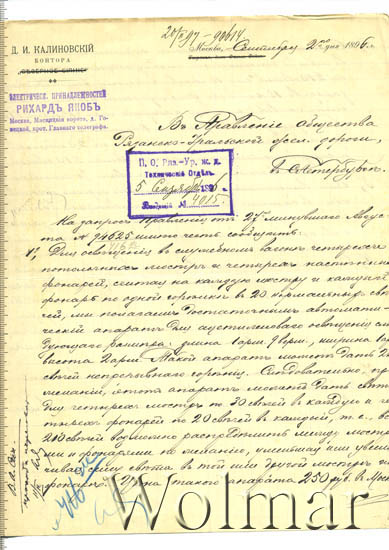 Д. И. КАЛИНОВСКІЙ
КОНТОРА
ЭЛЕКТРИЧЕСК. ПРИНАДЛЕЖНОСТЕЙ
РИХАРДЪ ЯКОБЪ
Москва, Мясницкія ворота, д.
противъ Главнаго телеграфа.
Москва, Сентября 2го дня 1896 г.
Въ Правленіе Общества
Рязанско-Уральской жел. дороги,
С. Петербургъ.
П. О. Ряз.-Ур. ж. д.
Техническій Отдѣлъ.
5 1896
Входящій № 4015
На запросъ Правленія отъ 27 минувшаго Авгу-
ста № 74625 имѣю честь сообщить:
1, Для освѣщенія въ служебномъ вагонѣ четырехъ
потолочныхъ люстръ и четырехъ настѣнныхъ
фонарей, считая на каждую люстру и каждый
фонарь по одной горелкѣ въ 20 нормальныхъ свѣ-
чей, мы полагаемъ достаточнымъ автомати-
ческій аппаратъ для ацетиленоваго освѣщенія слѣ-
дующаго размѣра: длина 1 арш. ширина
высота 2 арш. Такой аппаратъ можетъ дать
свѣчей непрерывнаго горѣнія. Слѣдовательно, при
желаніи, этотъ аппаратъ можетъ дать свѣтъ
для четырехъ люстръ по 30 свѣчей въ каждой и че-
тырехъ фонарей по 20 свѣчей въ каждой, т. е.
200 свѣчей возможно распредѣлить между люстра-
ми и фонарями по желанію, уменьшая или увели-
чивая силу свѣта въ той или другой люстрѣ или
фонарѣ. Цѣна такого аппарата 250 руб. въ Москвѣ
Wolmar